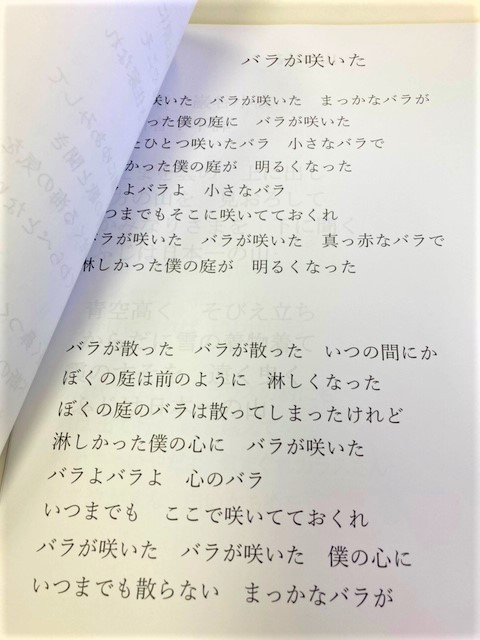 バラが咲いた
咲いた　バラが咲いた　まっかなバラが
った僕の庭に　バラが咲いた
とひとつ咲いたバラ　小さなバラで
かった僕の庭が　明るくなった
よバラよ　小さなバラ
つまでもそこに咲いてておくれ
ラが咲いた　バラが咲いた　真っ赤なバラで
淋しかった僕の庭が　明るくなった
青空高く　そびえ立ち
バラが散った　バラが散った　いつの間にか
ぼくの庭は前のように　淋しくなった
ぼくの庭のバラは散ってしまったけれど
淋しかった僕の心に　バラが咲いた
バラよバラよ　心のバラ
いつまでも　ここで咲いてておくれ
バラが咲いた　バラが咲いた　僕の心に
いつまでも散らない　まっかなバラが